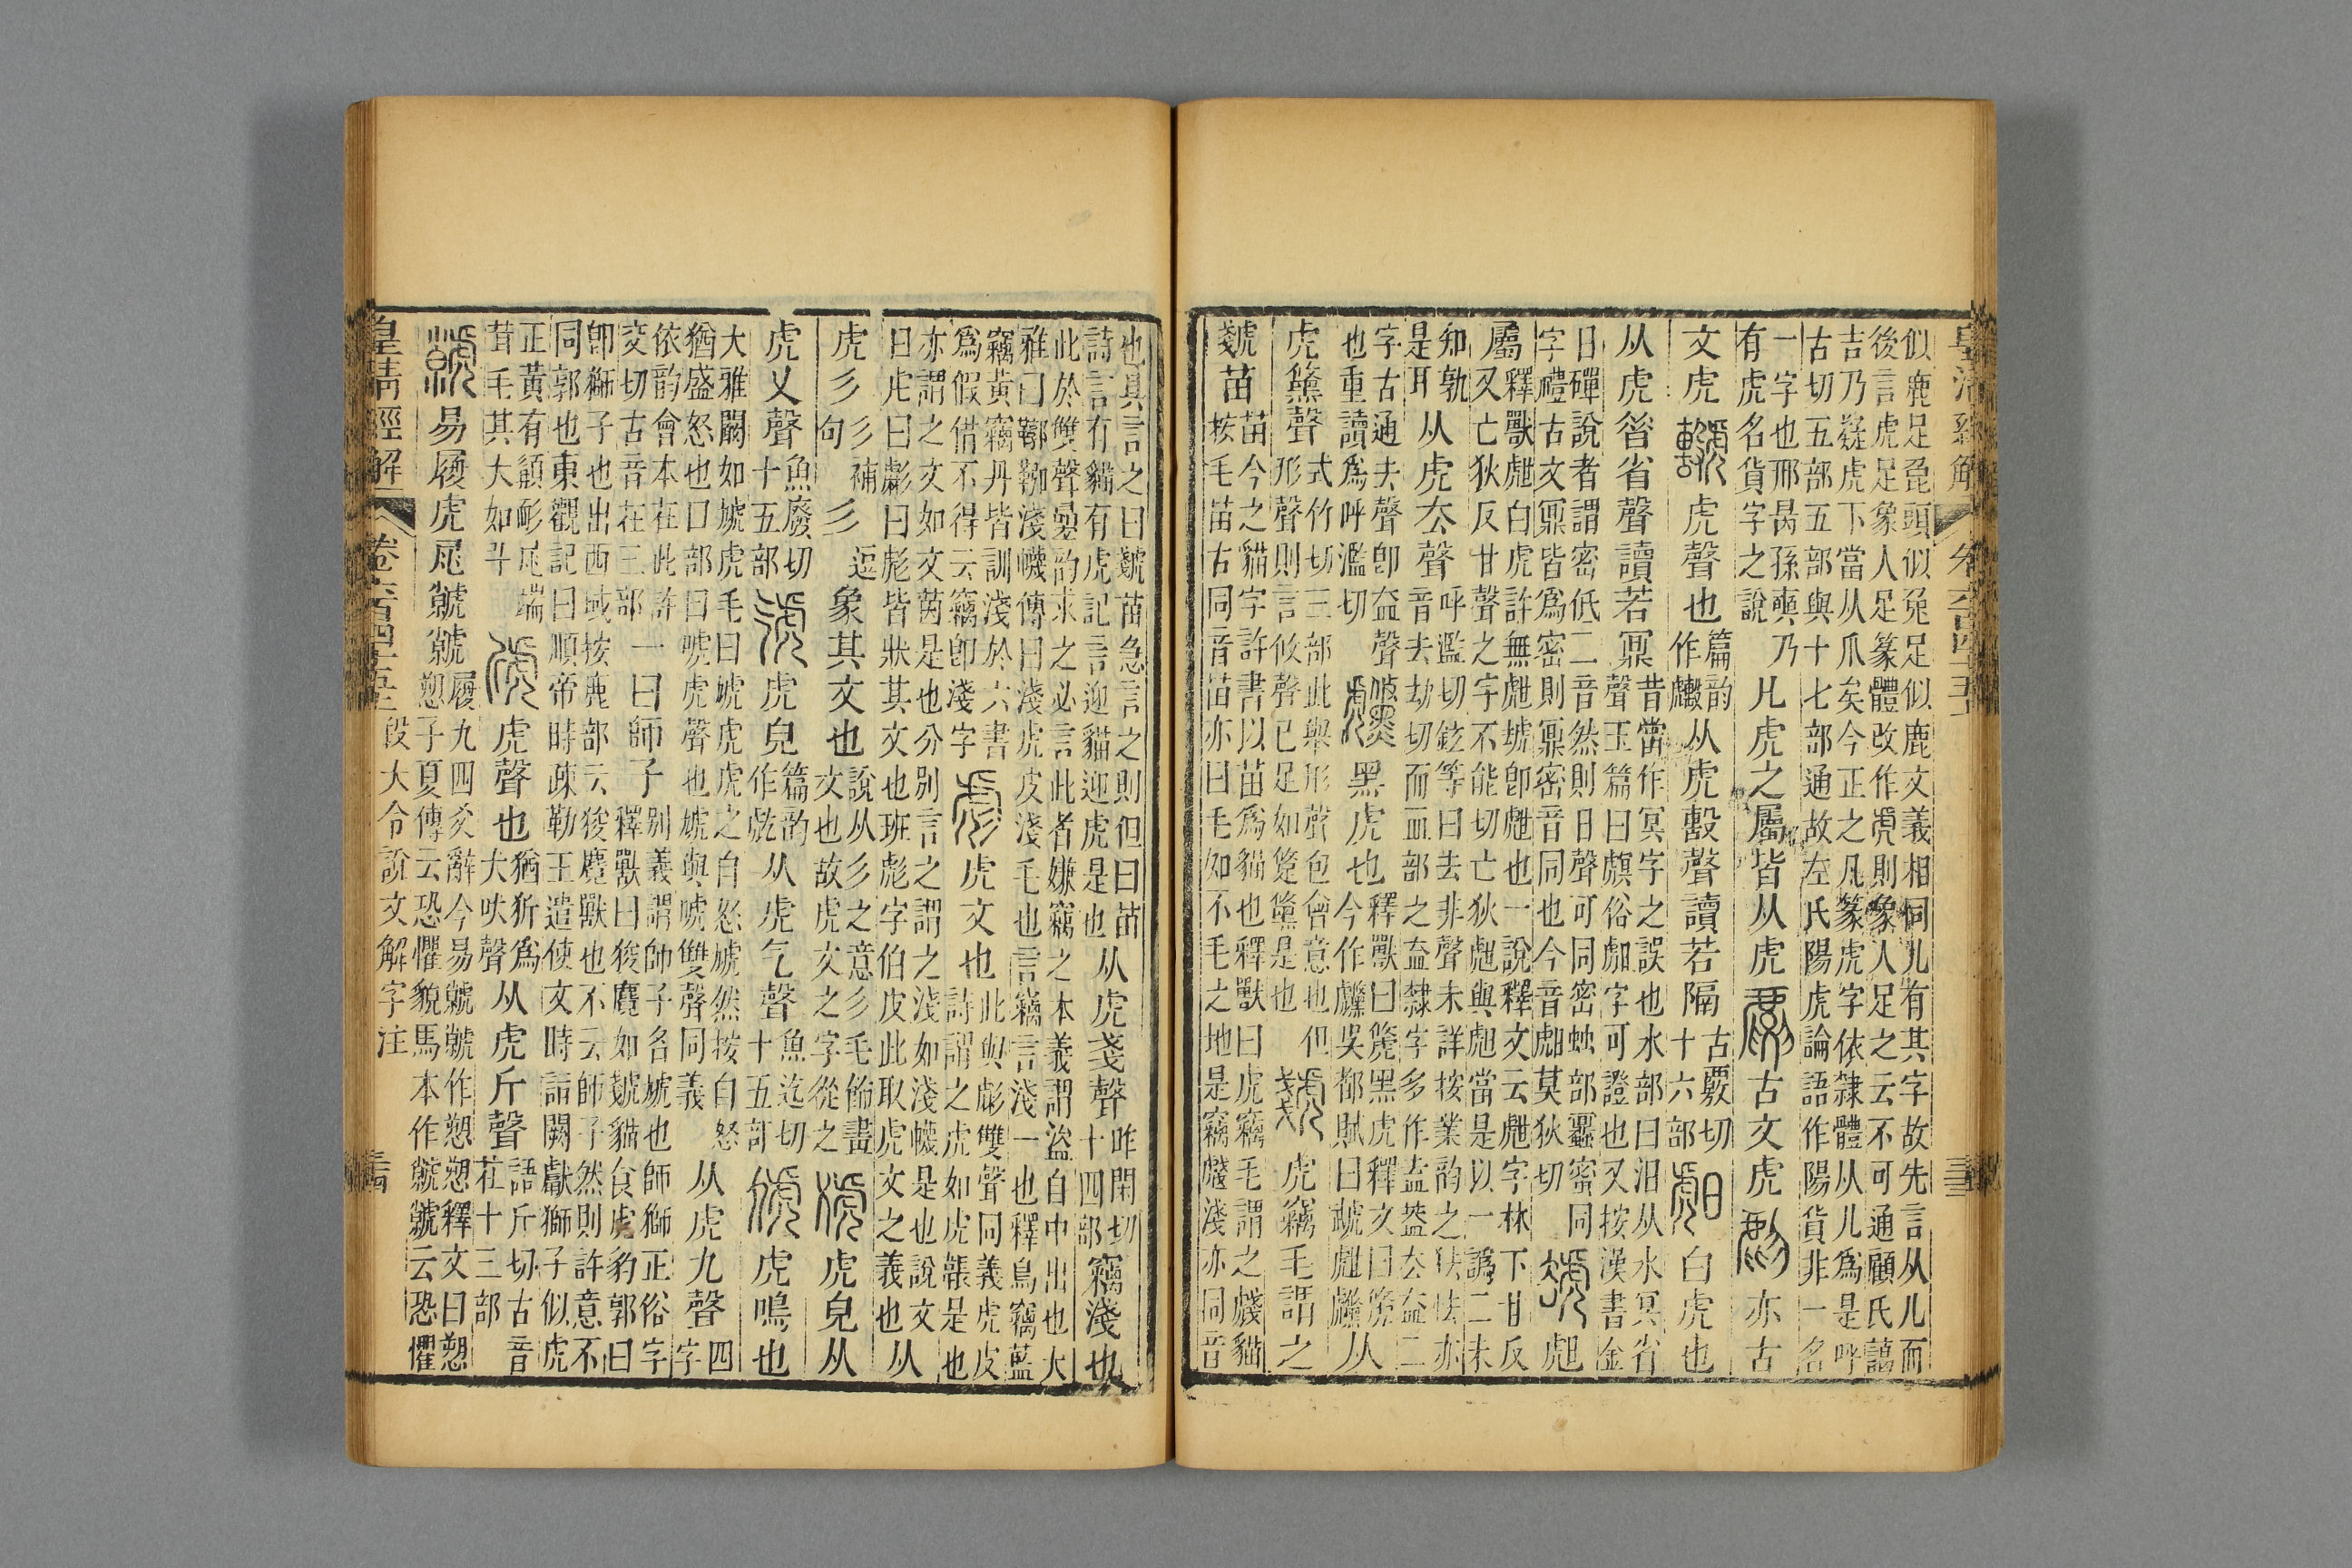 似鹿足㲋頭似兔足似鹿文義相同儿有其字故先言从儿而
後言虎足象人足篆體改作虎則象人足之云不可通顧氏藹
吉乃疑虎下當从爪矣今正之凡篆虎字依隸體从儿為是呼
古切五部五部與十七部通故左氏陽虎論語作陽貨非一名
一字也邢昺孫奭乃
有虎名貨字之說
凡虎之屬皆从虎
古文虎
亦古
文虎
虎聲也
篇韵
作
从虎㱿聲讀若隔
古覈切
十六部
白虎也
从虎㫺省聲讀若鼏
昔當作冥字之誤也水部曰汨从水冥省
聲玉篇曰䖑俗字可證也又按漢書金
日磾說者謂密低二音然則日聲可同密䖵部蠠密同
字禮古文鼏皆為密則鼏密音同也今音莫狄切
屬
釋獸甝白虎許無甝虪卽甝也一說釋文云甝字林下甘反
又亡狄反甘聲之字不能切亡狄與當是以一譌二未
知孰
是耳
从虎去聲
呼濫切鉉等曰去非聲未詳按業韵之怯亦
音去劫切而皿部之盇隸字多作盍葢去盇二
字古通去聲卽盇聲
也重讀為呼濫切
黑虎也
釋獸曰虪黑虎釋文曰虪
今作吳都賦曰
从
虎儵聲
式竹切三部此舉形聲包會意也但
形聲則言攸聲已足如是也
虎竊毛謂之
虦苗
苗今之貓字許書以苗為貓也釋獸曰虎竊毛謂之虦貓
按毛苗古同音苗亦曰毛如不毛之地是竊虦淺亦同音
也具言之曰虦苗急言之則但曰苗
詩言有貓有虎記言迎貓迎虎是也
从虎戔聲
昨閑切
十四部
竊淺也
此於雙聲曡韵求之必言此者嫌竊之本義謂盜自中出也大
雅曰鞹鞃淺幭傳曰淺虎皮淺毛也言竊言淺一也釋鳥竊藍
竊黃竊丹皆訓淺於六書
為假借不得云竊卽淺字
虎文也
此與彪雙聲同義虎皮
詩謂之虎如虎韔是也
亦謂之文如文茵是也分別言之謂之淺如淺幭是也說文
曰虎曰彪曰彪皆狀其文也班彪字伯皮此取虎文之義也
从
虎彡
句
彡
補
彡
逗
象其文也
說从彡之意彡毛飾畫
文也故虎文之字從之
虎皃从
虎乂聲
魚廢切
十五部
虎皃
篇韵
作
从虎气聲
魚迄切
十五部
虎鳴也
大雅闞如虓虎毛曰虓虎虎之自怒虓然按自怒
猶盛怒也口部曰唬虎聲也虓與唬雙聲同義
从虎九聲
四
字
依韵會本在此許
交切古音在三部
一曰師子
別義謂師子名虓也師獅正俗字
釋獸曰狻麑如虦貓食虎豹郭曰
卽獅子也出西域按鹿部云狻麑獸也不云師子然則許意不
同郭也東觀記曰順帝時疏勒王遣使文時詣闕獻獅子似虎
正黃有䫇耏尾端
茸毛其大如斗
虎聲也
猶狋為
犬吠聲
从虎斤聲
語斤切古音
在十三部
易履虎尾虩虩
履九四爻辭今易虩虩作愬愬釋文曰愬
愬子夏傳云恐懼貌馬本作虩虩云恐懼
皇清經解
卷六百四十五上
段大令說文解字注